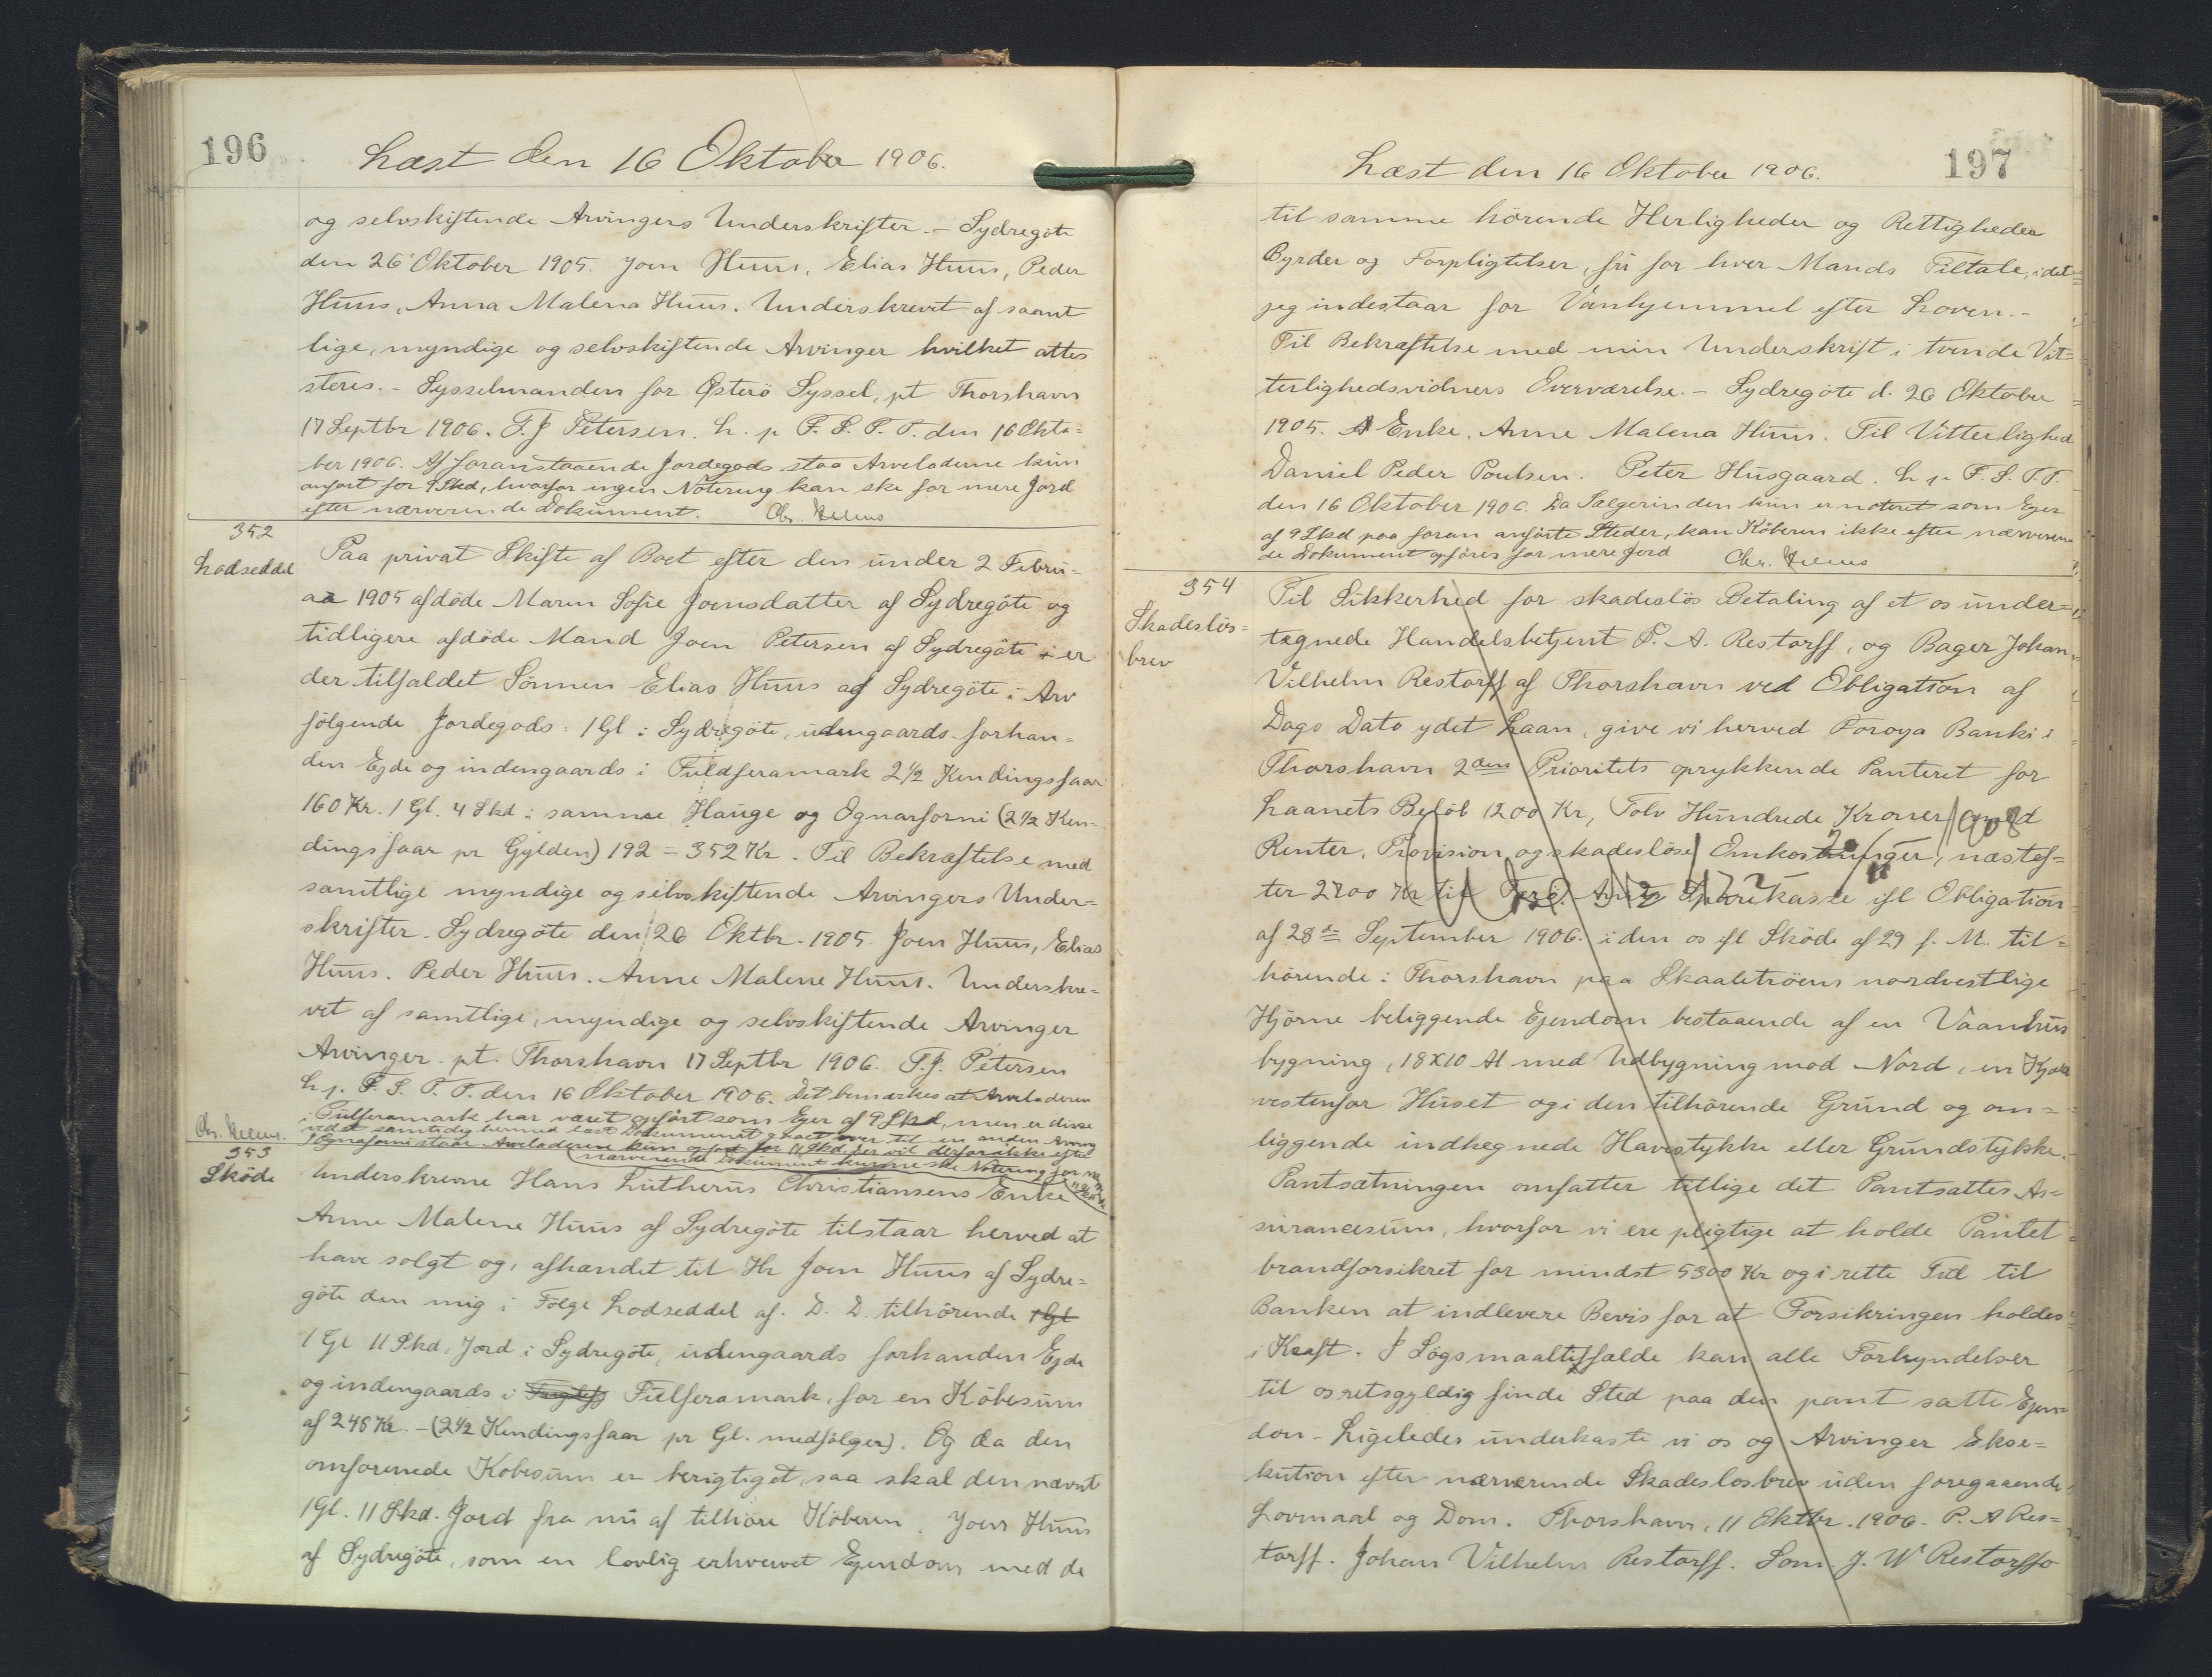 196
Læst den 16 Oktober 1906.
og selvskiftende Arvingers Underskrifter. – Sydregøte
den 26 Oktober 1905. Joen Huus, Elias Huus, Peder
Huus, Anna Malena Huus. Underskrevet af samt
lige, myndige og selvskiftende Arvinger hvilket attes
steres. – Sysselmanden for Østerö Syssel, pt Thorshavn
17 Septbr 1906. T. J Petersen. L. p F. S. P. T. den 16 Okto=
ber 1906. Af foranstaaende Jordegods staa Arveladerne kun
anført for 9 Skd, hvorfor ingen Notering kan ske for mere Jord
efter nærværende Dokument.
352
Lodseddel
Paa privat Skifte af Boet efter den under 2 Febru=
ar 1905 afdöde Maren Sofie Joensdatter af Sydregöte og
tidligere afdöde Mand Joen Petersen af Sydregöte er
der tilfaldet Sönnen Elias Huus af Sydregöte i Arv
fölgende Jordegods: 1 Gl i Sydregöte, udengaards forhan=
den Ejde og indengaards i Fuldferamark 2½ Kendingsfaar
160 Kr. 1 Gl. 4 Skd i samme Hauge og Ognarforni (2½ Ken-
dingsfaar pr Gylden) 192 = 352 Kr. Til Bekræftelse med
samtlige myndige og selvskiftende Arvingers Under=
skrifter. Sydregöte den 26 Oktbr. 1905. Joen Huus, Elias
Huus. Peder Huus. Anne Malene Huus. Underskre=
vet af samtlige, myndige og selvskiftende Arvinger
Arvinger. pt. Thorshavn 17 Septbr 1906. T. J. Petersen
L. p. F. S. P. T. den 16 Oktober 1906. Det bemærkes at Arveladeren
i Fulferamark har været opført som Ejer af 9 Skd, men er disse
ved et samtidig hermed læst Dokument gaaet over til en anden Arving
I Ognaforni staar Arveladerne kun opført for 11 Skd, der vil derfor ikke efter
nærværende Dokument kunne ske Notering for mere
353
Sköde
Underskrevne Hans Lutherus Christiansens Enke
Anne Malene Huus af Sydregöte tilstaar herved at
have solgt og, afhændet til Hr Joen Huus af Sydre=
göte den mig i Fölge Lodseddel af. D. D. tilhörende 1 Gl
1 Gl 11 Skd. Jord i Sydregöte, udengaards forhanden Ejde
og indengaards i Fulferamark, for en Köbesum
af 248 Kr. – (2½ Kendingsfaar pr Gl. medfølger). Og da den
omforenede Köbesum er berigtiget, saa skal den nævnt
1 Gl. 11 Skd. Jord fra nu af tilhöre Köberen, Joen Huus
af Sydregöte, som en lovlig erhvervet Ejendom med de
197
Læst den 16 Oktober 1906.
til samme hörende Herligheder og Rettigheder
Byrder og Forpligtelser, fri for hver Mands Tiltale, idet
jeg indestaar for Vanhjemmel efter Loven. –
Til Bekræftelse med min Underskrift i tvende Vit=
terlighedsvidners Overværelse. – Sydregöte d. 26 Oktober
1905. Enke. Anne Malena Huus. Til Vitterlighed
Daniel Peder Poulsen. Peter Husgaard. L. p. F. S. P. T.
den 16 Oktober 1906. Da Sælgerinden kun er noteret som Ejer
af 9 Skd paa foran anførte Steder, kan Köberen ikke efter nærværen
de Dokument opføres for mere Jord
354
Skadeslös=
brev
Til Sikkerhed for skadeslös Betaling af et os under=
tegnede Handelsbetjent P. A. Restorff, og Bager Johan
Vilhelm Restorff af Thorshavn ved Obligation af
Dags Dato ydet Laan, give vi herved Föroya Banki i
Thorshavn 2den Prioritets oprykkende Panteret for
Laanets Belöb 1200 Kr, Tolv Hundrede Kroner med
Renter, Provision og skadeslöse Omkostninger, næstef=
ter 2700 Kr til Færö Amts Sparekasse ifl Obligation
af 28de September 1906. i den os ifl Sköde af 29 f. M. til=
hörende i Thorshavn paa Skaaletröens nordvestlige
Hjörne beliggende Ejendom bestaaende af en Vaanhus
bygning, 18x10 Al med Udbygning mod Nord, en Kjæld
vestenfor Huset og i den tilhörende Grund og om=
liggende indhegnede Havestykke eller Grundstykke.
Pantsætningen omfatter tillige det Pantsattes As=
surancesum, hvorfor vi ere pligtige at holde Pantet
brandforsikret for mindst 5300 Kr og i rette Tid til
Banken at indlevere Bevis for at Forsikringen holdes
i Kraft. I Sögsmaaltilfælde kan alle Forkyndelser
til os retsgyldig finde Sted paa den pant satte Ejen=
dom – Ligeledes underkaste vi os og Arvinger Ekse=
kution efter nærværende Skadeslosbrev uden foregaaende
Lovmaal og Dom. Thorshavn, 11 Oktbr. 1906. P. A Res=
torff. Johan Vilhelm Restorff. Som J. W Restorffs